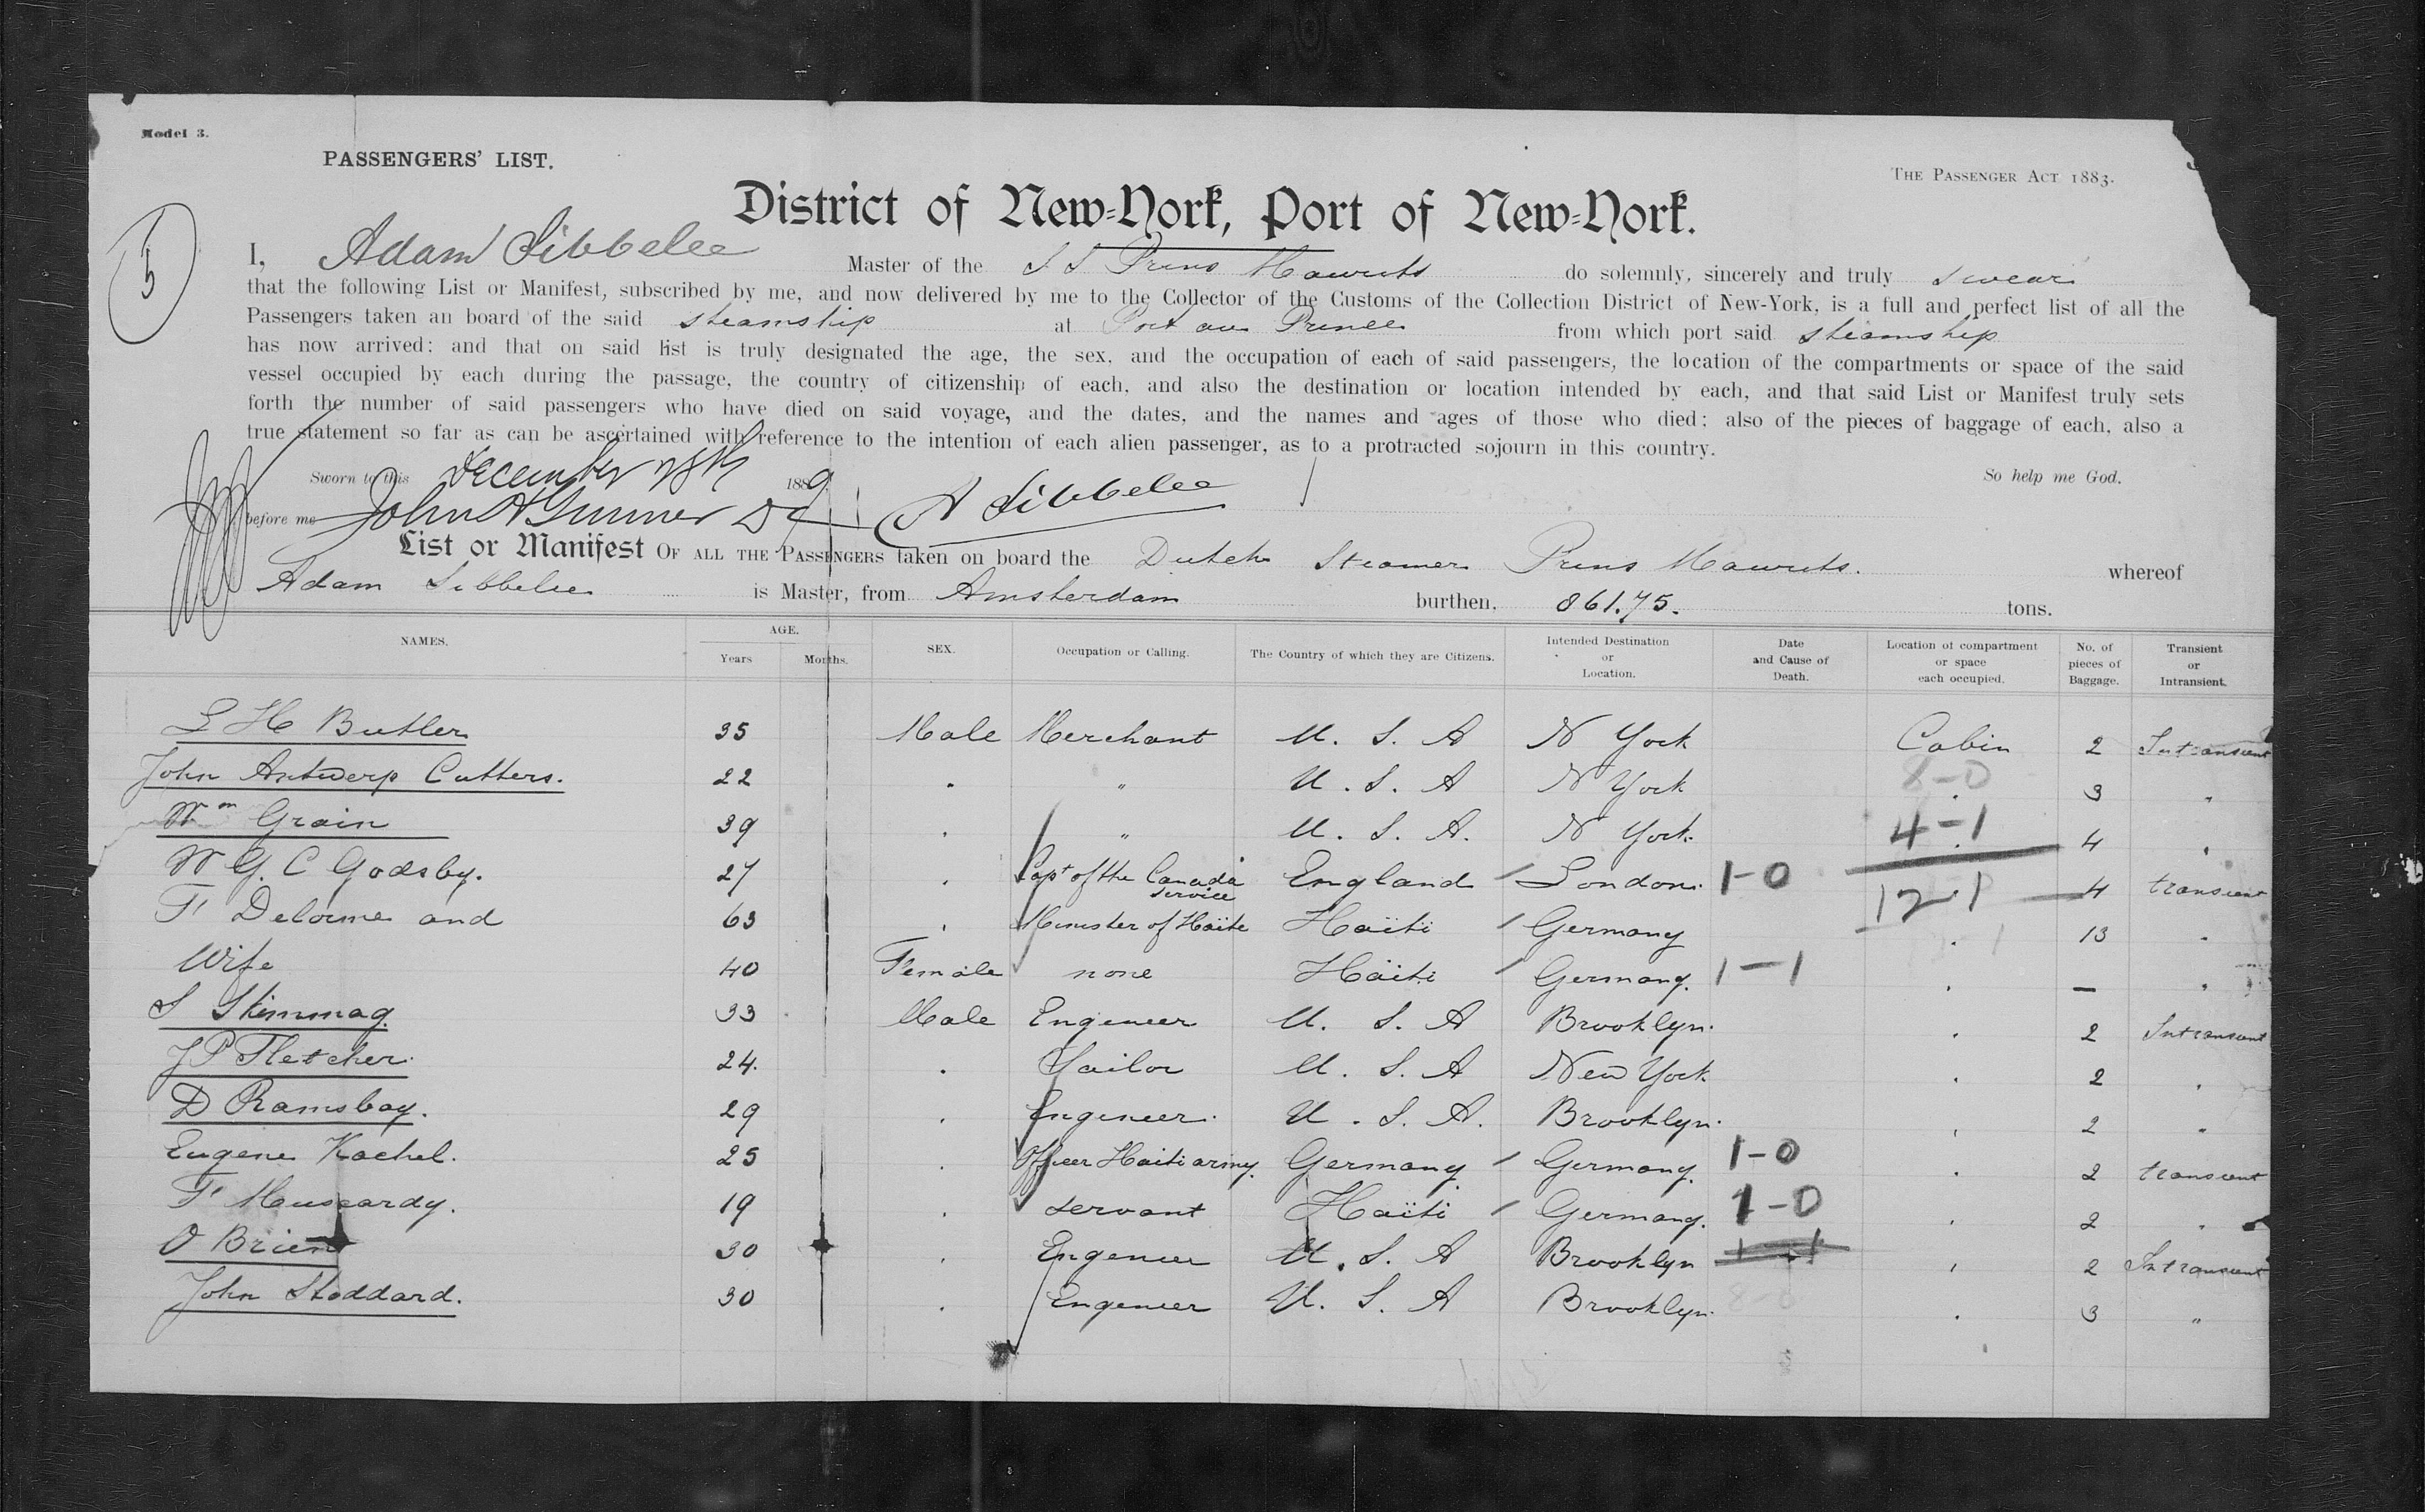 Model 3.
PASSENGERS' LIST.
THE PASSENGER ACT 1883.
District of New-York, Port of New-York.
5
I, Adam Sibbelee Master of the S S Prins Maurits do solemnly, sincerely and truly swear
that the following List or Manifest, subscribed by me, and now delivered by me to the Collector of the Customs of the Collection District of New-York, is a full and perfect list of all the
Passengers taken an board of the said steamship at Port au Prince from which port said steamship
has now arrived: and that on said list is truly designated the age, the sex, and the occupation of each of said passengers, the location of the compartments or space of the said
vessel occupied by each during the passage, the country of citizenship of each, and also the destination or location intended by each, and that said List or Manifest truly sets
forth the number of said passengers who have died on said voyage, and the dates, and the names and ages of those who died; also of the pieces of baggage of each, also a
true statement so far as can be ascertained with reference to the intention of each alien passenger, as to a protracted sojourn in this country.
Sworn to this December 28th 1889 So help me God.
before me John A Gunner A Sibbelee
List or Manifest OF ALL THE PASSENGERS taken on board the Dutch Steamer Prins Maurits. whereof
Adam Sibbelee is Master, from Amsterdam burthen, 861.75. tons.
NAMES. AGE. Years Months. SEX. Occupation or Calling. The Country of which they are Citizens. Intended Destination or Location. Date and Cause of Death. Location of compartment or space each occupied. No. of pieces of Baggage. Transient or Intransient.
S H Butler 35 Male Merchant U. S. A N York Cabin 2 Intransient
John Antwerp Cutters. 22 . " U. S. A N York 8-0 . 3 "
Wm Grain 39 . " U. S. A. N York. 4-1 . 4 "
W G. C Godsby. 27 . Capt of the Canada service England London. 1-0 12-1 4 transient
F Delorme and 63 . Minister of Haïte Haïti Germany . 13 "
Wife 40 Female none Haïti Germany. 1-1 . — "
S Skimmag 33 Male Engeneer U. S. A Brooklyn. . 2 Intransient
J P Fletcher. 24. . Sailor U. S. A New York . 2 "
D Ramsbay. 29 . Engeneer. U. S. A. Brooklyn. . 2 "
Eugene Kachel. 25 . Officer Haiti army. Germany Germany. 1-0 . 2 transient
F Muscardy. 19 . servant Haïti Germany. 1-0 . 2 "
O Brien 30 . Engeneer U. S. A Brooklyn 1-1 . 2 Intransient
John Stoddard. 30 . Engeneer U. S. A Brooklyn. 8-0 . 3 "